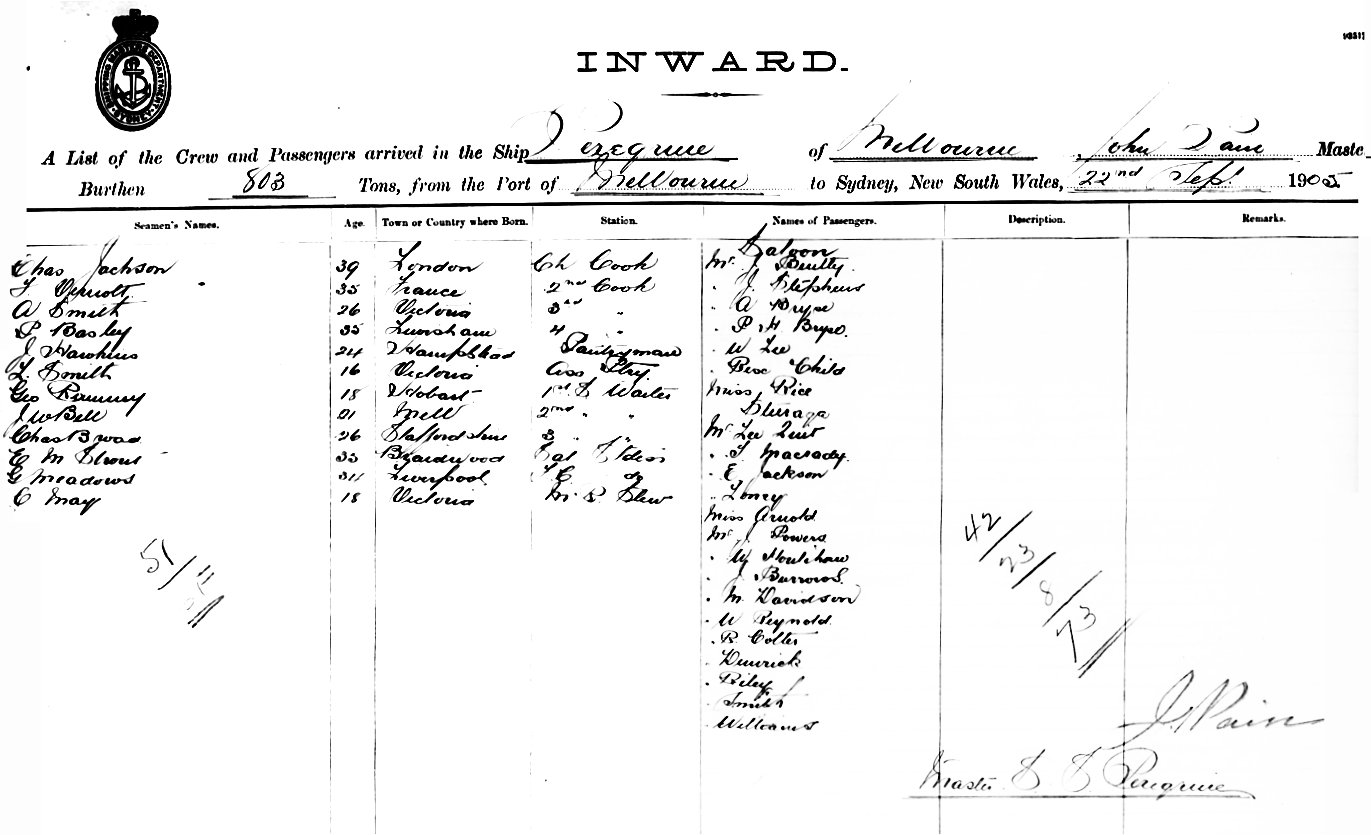 SHIPPING MASTERS DEPARTMENT SYDNEY
INWARD.
A List of the Crew and Passengers arrived in the Ship Peregrine of Melbourne, John Pain Maste
Burthen 803 Tons, from the Port of Melbourne to Sydney, New South Wales, 22nd Sept 1905
Seamen's Names. Age. Town or Country where Born. Station. Names of Passengers. Description. Remarks.
Saloon
Chas Jackson 39 London Ch Cook Mr J
35 France 2nd Cook " J. Stephens
A Smith 26 Victoria 3rd " " A Bryse
P Basley 35 Lewisham 4 " " P H Bryse
J Hawkins 24 Hampstead Pantryman " W Lee
L Smith 16 Victoria Ass Ptry " Child
Geo 18 Hobart 1st S Waiter Miss Rice
J W Bell 21 Melb 2nd " " Steerage
Chas 26 Staffordshire 3 " " Mr Lee
E M 33 Braidwood " T. Macready
G Meadows 34 Liverpool " E. Jackson
C May 18 Victoria "
Miss Arnold
Mr J Powers
" W
" J. Burrows
" M. Davidson
" W Reynold
" R.
"
" Riley
" Smith
" Williams
51/11
42/23/8/73
J. Pain
Master S S Peregrine